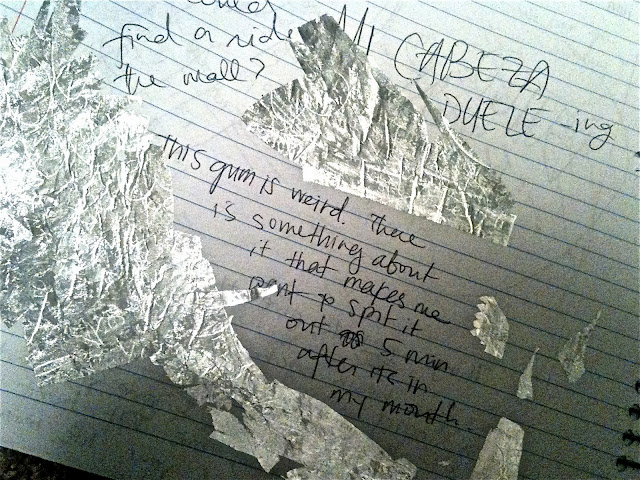 could
find a ride
the mall?
MI CABEZA
DUELE -ing
This gum is weird. There
is something about
it that makes me
want to spit it
out 5 min
after its in
my mouth.